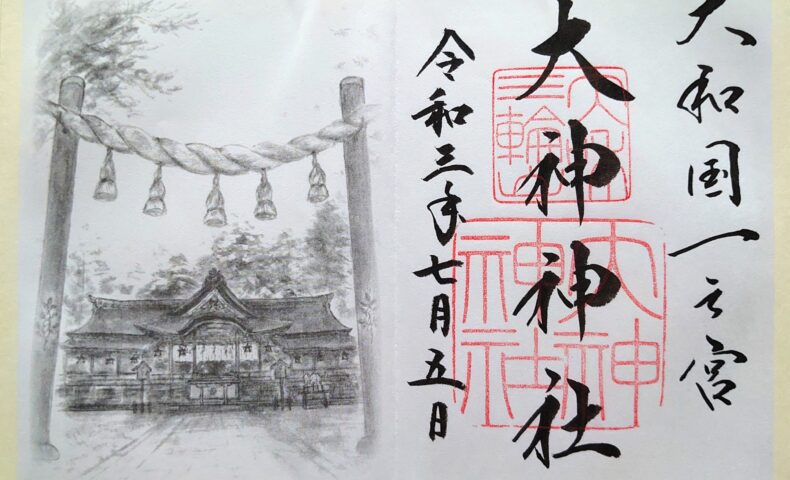 大和国一之宮
大神神社
令和三年七月五日
大神
神社